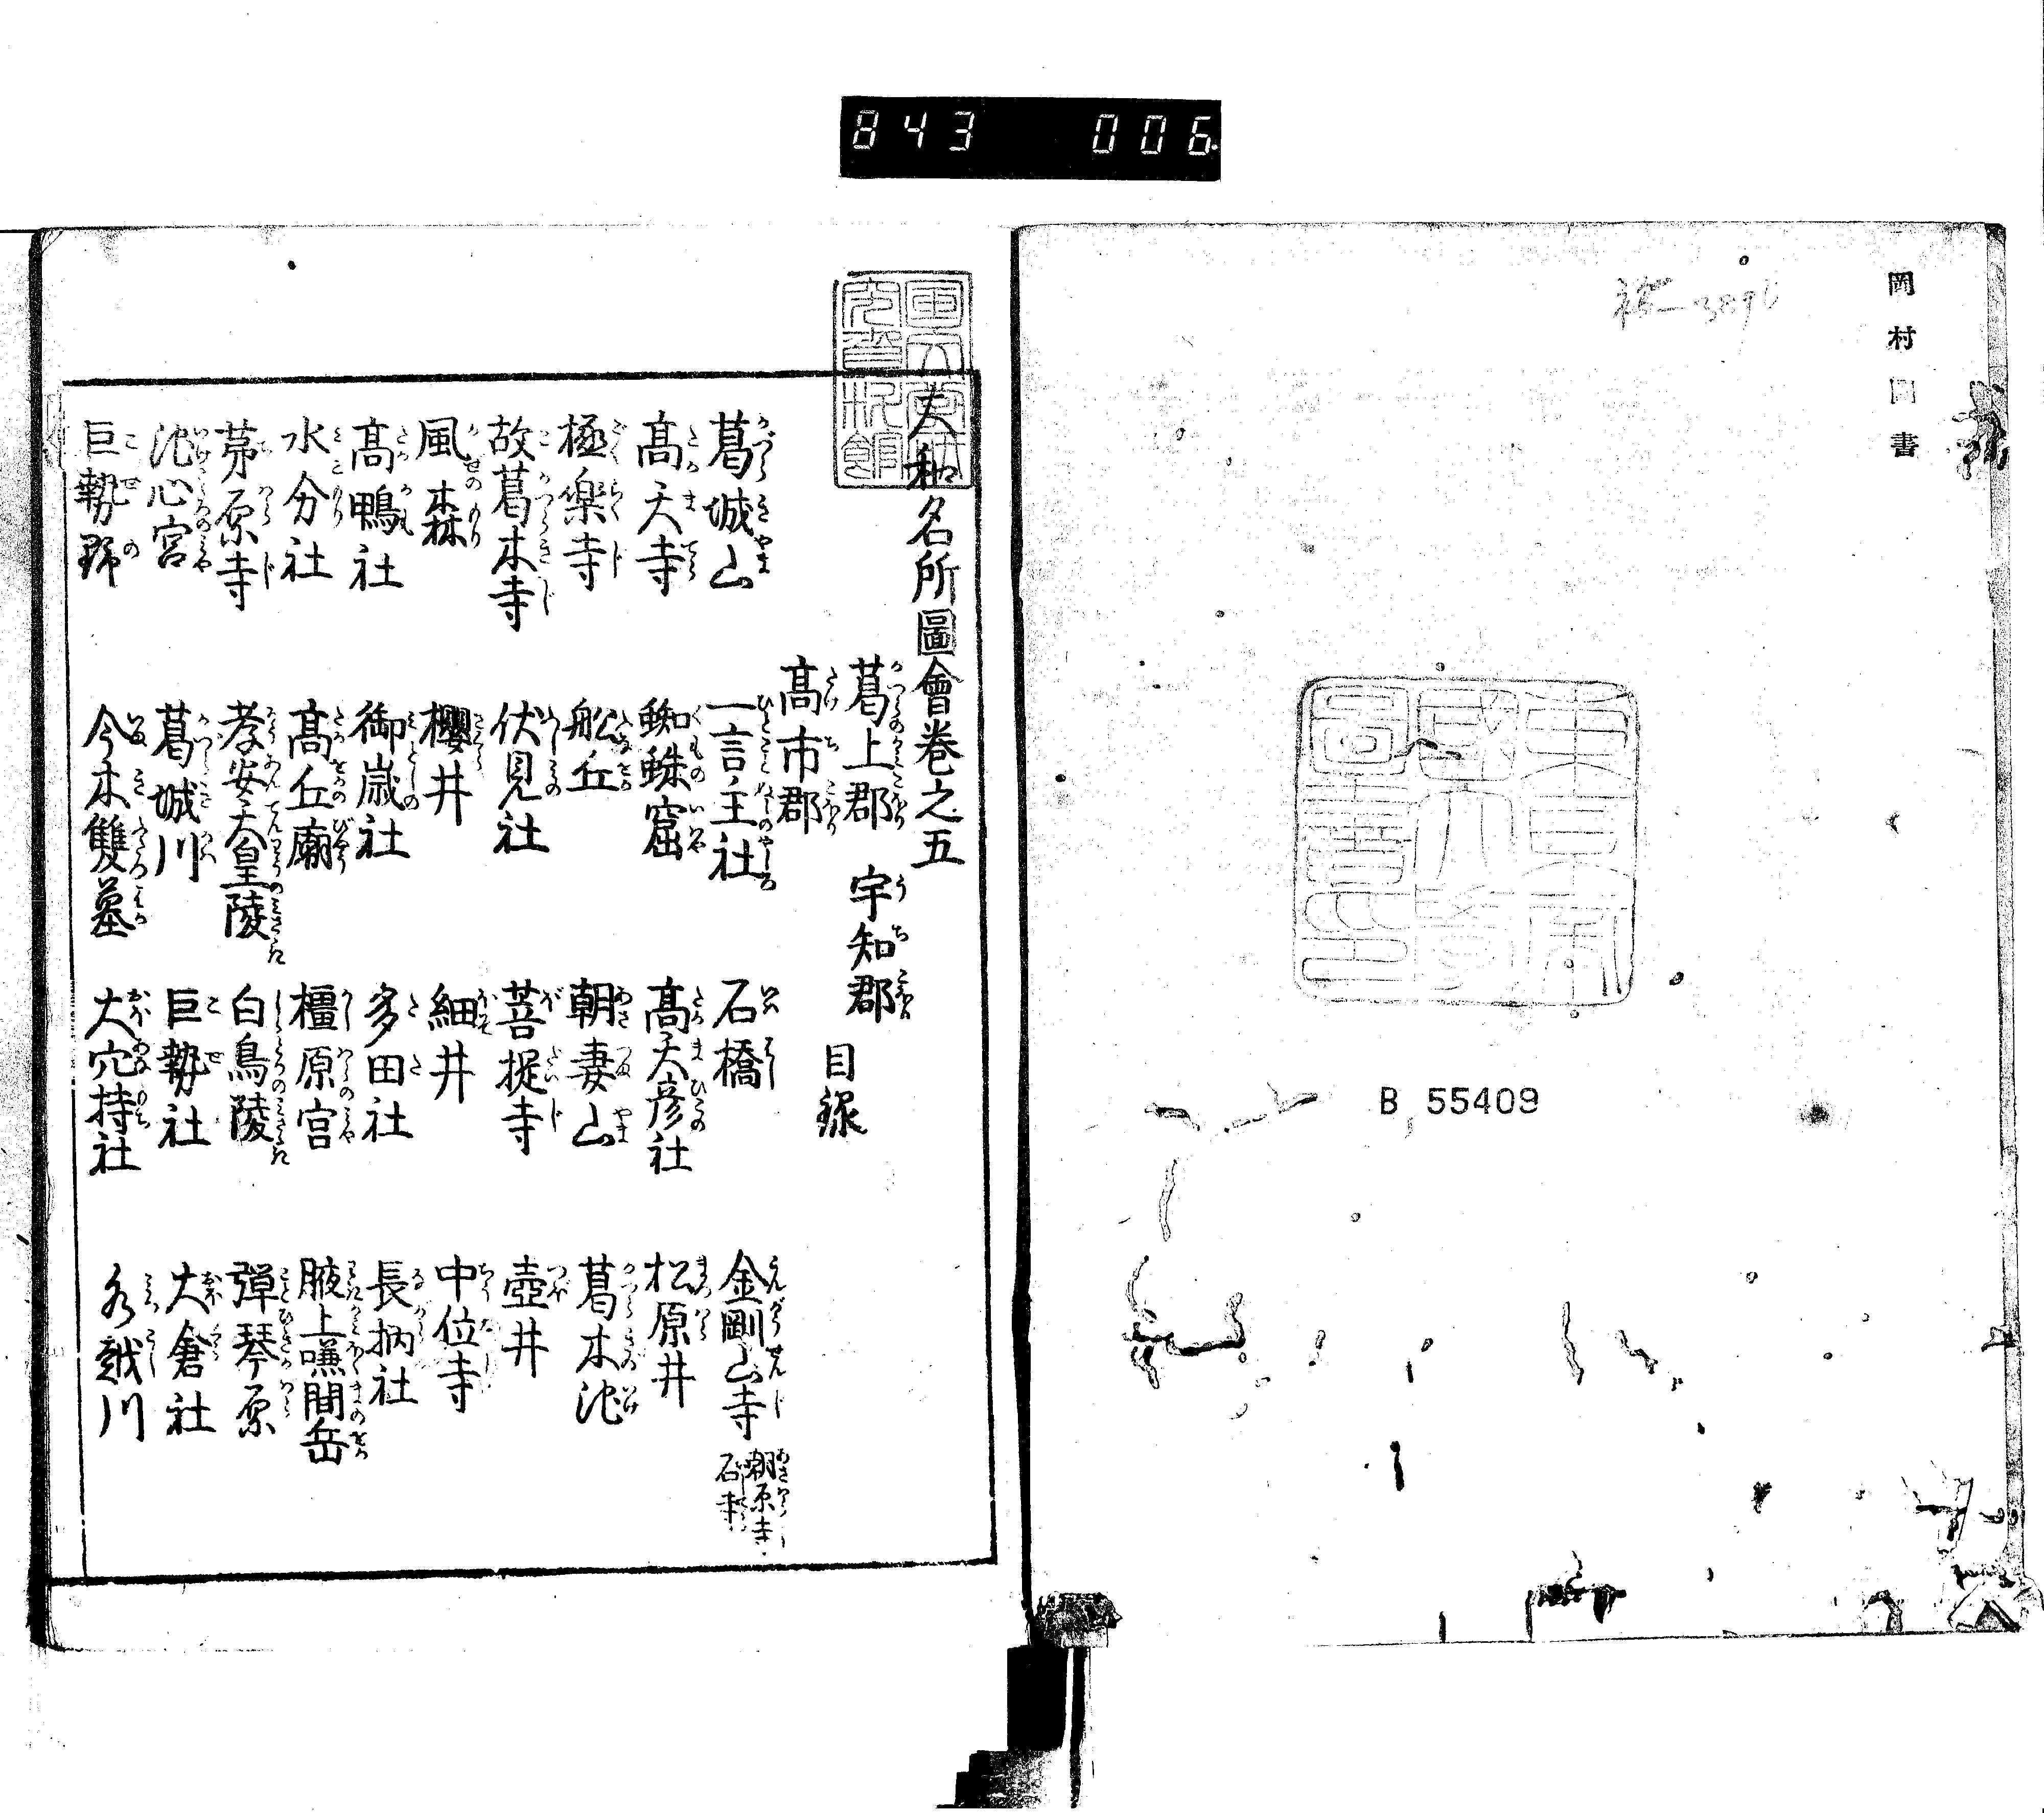 843 006
岡村圖書
B 55409
大和名所圖會巻之五
葛上郡 宇知郡
髙市郡 目録
葛城山 一言主社 石橋 金剛山寺 朝原寺 石寺
髙天寺 蜘蛛窟 髙天彦社 松原井
極樂寺 舩丘 朝妻山 葛木池
故葛木寺 伏見社 菩提寺 壺井
風森 櫻井 細井 中位寺
髙鴨社 御歳社 多田社 長柄社
水分社 髙丘廟 橿原宮 腋上嗛間岳
茅原寺 孝安天皇陵 白鳥陵 彈琴原
池心宮 葛城川 巨勢社 大倉社
巨勢野 今木雙墓 大穴持社 水越川